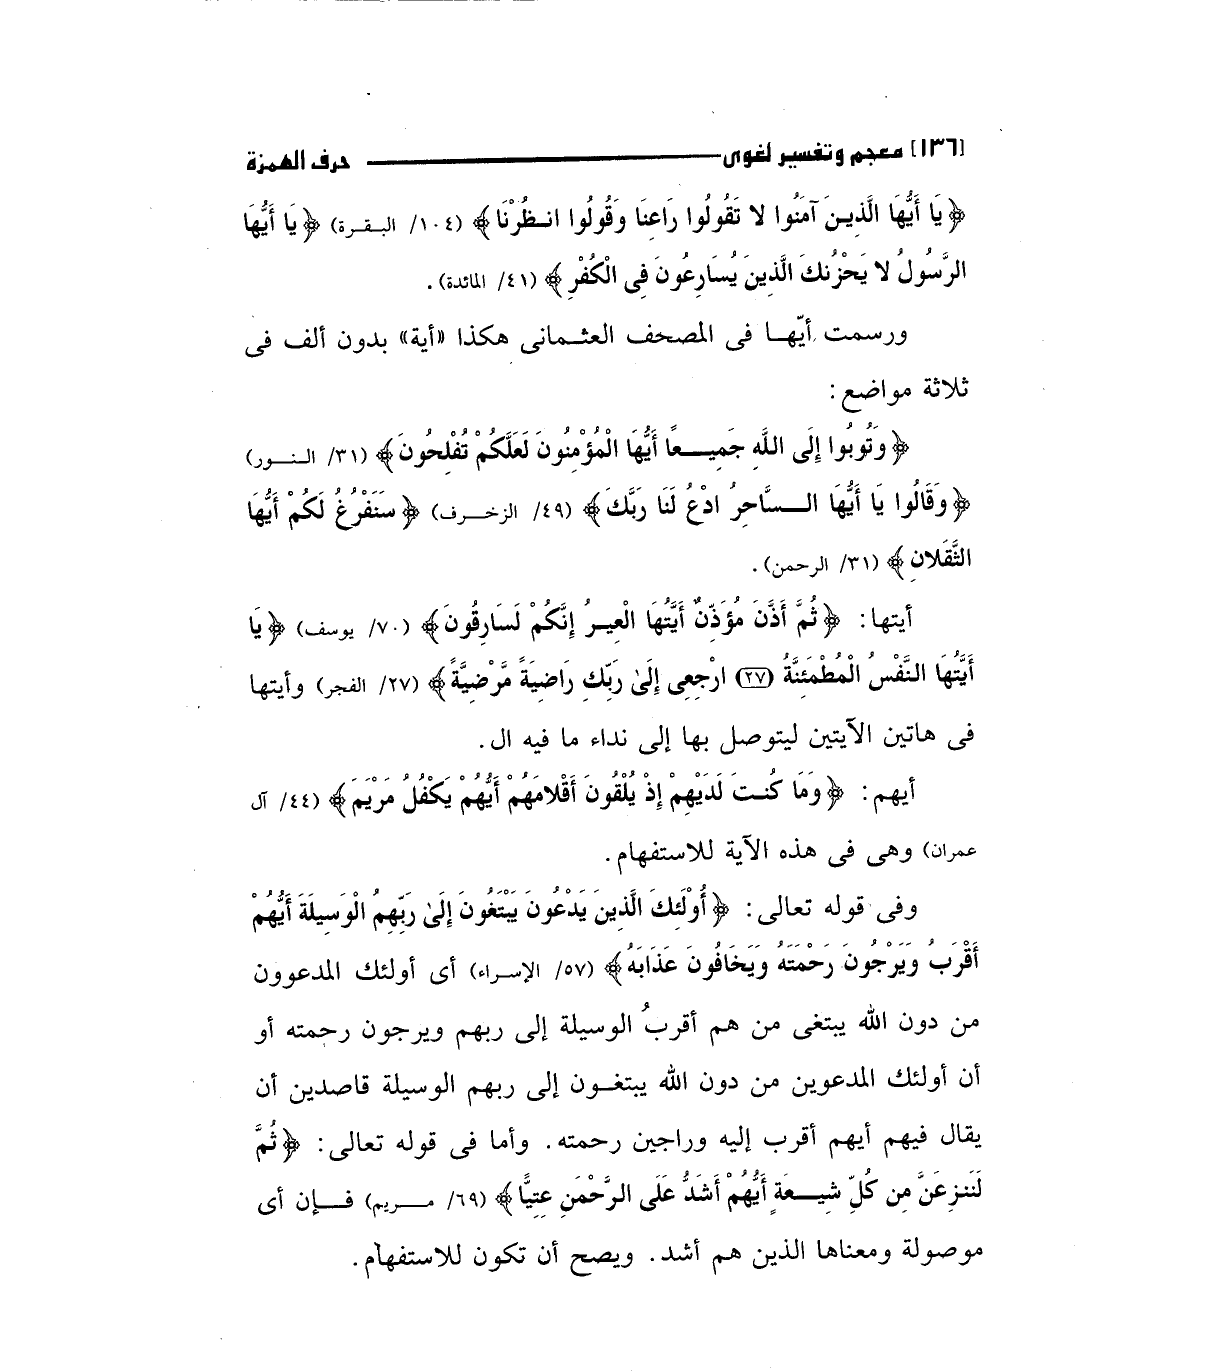 [١٣٦] معجم وتفسير لغوى حرف الهمزة
﴿يَا أَيُّهَا الَّذِينَ آمَنُوا لا تَقُولُوا رَاعِنَا وَقُولُوا انظُرْنَا﴾ (١٠٤/ البقرة) ﴿يَا أَيُّهَا
الرَّسُولُ لا يَحْزُنكَ الَّذِينَ يُسَارِعُونَ فِى الْكُفْرِ﴾ (٤١/ المائدة).
ورسمت أيّها فى المصحف العثمانى هكذا «أية» بدون ألف فى
ثلاثة مواضع:
﴿وَتُوبُوا إِلَى اللَّهِ جَمِيعاً أَيُّهَا الْمُؤْمِنُونَ لَعَلَّكُمْ تُفْلِحُونَ﴾ (٣١/ النور)
﴿وَقَالُوا يَا أَيُّهَا السَّاحِرُ ادْعُ لَنَا رَبَّكَ﴾ (٤٩/ الزخرف) ﴿سَنَفْرُغُ لَكُمْ أَيُّهَا
الثَّقَلانِ﴾ (٣١/ الرحمن).
أيتها: ﴿ثُمَّ أَذَّنَ مُؤَذِّنٌ أَيَّتُهَا الْعِيرُ إِنَّكُمْ لَسَارِقُونَ﴾ (٧٠/ يوسف) ﴿يَا
أَيَّتُهَا النَّفْسُ الْمُطْمَئِنَّةُ (٢٧) ارْجِعِى إِلَىٰ رَبِّكِ رَاضِيَةً مَّرْضِيَّةً﴾ (٢٧/ الفجر) وأيتها
فى هاتين الآيتين ليتوصل بها إلى نداء ما فيه ال.
أيهم: ﴿وَمَا كُنتَ لَدَيْهِمْ إِذْ يُلْقُونَ أَقْلامَهُمْ أَيُّهُمْ يَكْفُلُ مَرْيَمَ﴾ (٤٤/ آل
عمران) وهى فى هذه الآية للاستفهام.
وفى قوله تعالى: ﴿أُوْلَئِكَ الَّذِينَ يَدْعُونَ يَبْتَغُونَ إِلَىٰ رَبِّهِمُ الْوَسِيلَةَ أَيُّهُمْ
أَقْرَبُ وَيَرْجُونَ رَحْمَتَهُ وَيَخَافُونَ عَذَابَهُ﴾ (٥٧/ الإسراء) أى أولئك المدعوون
من دون الله يبتغى من هم أقربُ الوسيلة إلى ربهم ويرجون رحمته أو
أن أولئك المدعوين من دون الله يبتغون إلى ربهم الوسيلة قاصدين أن
يقال فيهم أيهم أقرب إليه وراجين رحمته. وأما فى قوله تعالى: ﴿ثُمَّ
لَنَنزِعَنَّ مِن كُلِّ شِيعَةٍ أَيُّهُمْ أَشَدُّ عَلَى الرَّحْمَنِ عِتِيًّا﴾ (٦٩/ مريم) فإن أى
موصولة ومعناها الذين هم أشد. ويصح أن تكون للاستفهام.